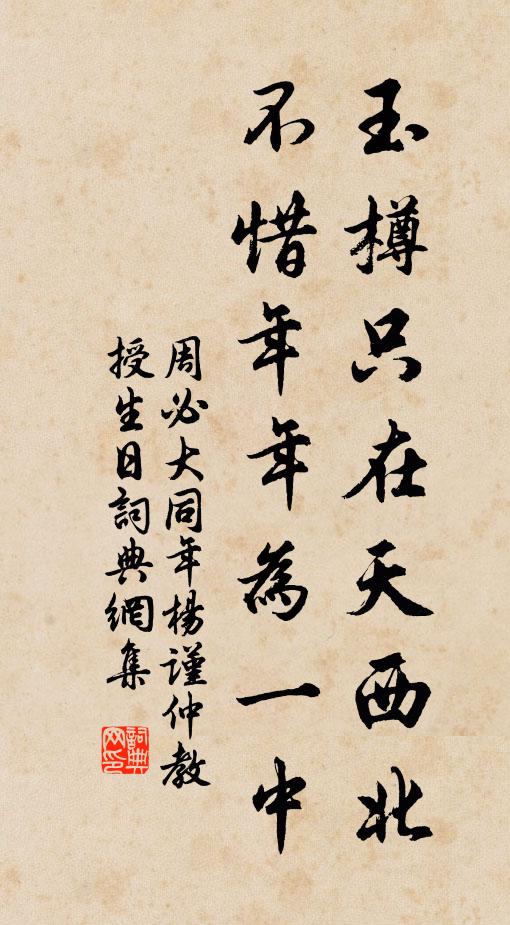 玉樽只在天西北
不惜年年為一中
周必大同年楊謹仲教
授生日詞典網集
詞典
网印